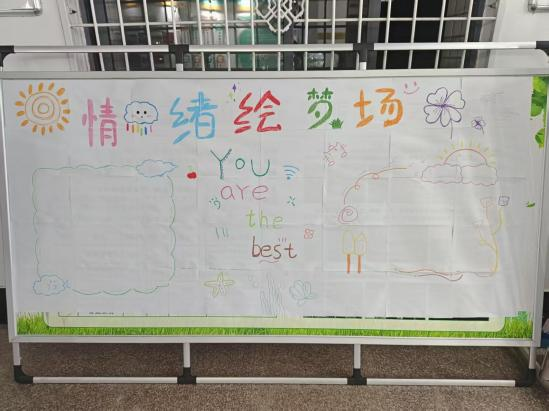 情绪绘梦场
You
are
the
best